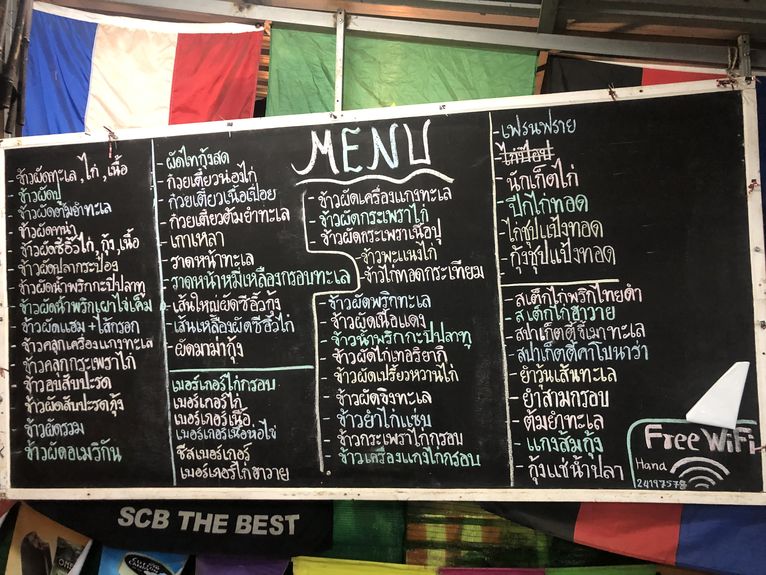 MENU
- ข้าวผัดทะเล, ไก่, เนื้อ
- ข้าวผัดปู
- ข้าวผัดต้มยำทะเล
- ข้าวผัดหน่ำ
- ข้าวผัดซีอิ๊วไก่, กุ้ง, เนื้อ
- ข้าวผัดปลากระป๋อง
- ข้าวผัดน้ำพริกกะปิปลาทู
- ข้าวผัดน้ำพริกเผาไข่เค็ม
- ข้าวผัดแฮม + ไส้กรอก
- ข้าวคลุกเครื่องแกงทะเล
- ข้าวคลุกกระเพราไก่
- ข้าวอบสับปะรด
- ข้าวผัดสับปะรดกุ้ง
- ข้าวผัดรวม
- ข้าวผัดอเมริกัน
- ผัดไทกุ้งสด
- ก๋วยเตี๋ยวน่องไก่
- ก๋วยเตี๋ยวเนื้อเปื่อย
- ก๋วยเตี๋ยวต้มยำทะเล
- เกาเหลา
- ราดหน้าทะเล
- ราดหน้าหมี่เหลืองกรอบทะเล
- เส้นใหญ่ผัดซีอิ๊วกุ้ง
- เส้นเหลืองผัดซีอิ๊วไก่
- ผัดมาม่ากุ้ง
- เบอร์เกอร์ไก่กรอบ
- เบอร์เกอร์ไก่
- เบอร์เกอร์เนื้อ
- เบอร์เกอร์เนื้อห่อไข่
- ชีสเบอร์เกอร์
- เบอร์เกอร์ไก่ฮาวาย
- ข้าวผัดเครื่องแกงทะเล
- ข้าวผัดกระเพราไก่
- ข้าวผัดกระเพราเนื้อปู
- ข้าวพะแนงไก่
- ข้าวไก่ทอดกระเทียม
- ข้าวผัดพริกทะเล
- ข้าวผัดเนื้อแดง
- ข้าวน้ำพริกกะปิปลาทู
- ข้าวผัดไก่เทอริยากิ
- ข้าวผัดเปรี้ยวหวานไก่
- ข้าวผัดขิงทะเล
- ข้าวยำไก่แซ่บ
- ข้าวกระเพราไก่กรอบ
- ข้าวเครื่องแกงไก่กรอบ
- เฟรนฟราย
- ไก่ป๊อป
- นักเก็ตไก่
- ปีกไก่ทอด
- ไก่ชุปแป้งทอด
- กุ้งชุปแป้งทอด
- สเต็กไก่พริกไทยดำ
- สเต็กไก่ฮาวาย
- สปาเก็ตตี้ขี้เมาทะเล
- สปาเก็ตตี้คาโบนาร่า
- ยำวุ้นเส้นทะเล
- ยำสามกรอบ
- ต้มยำทะเล
- แกงส้มกุ้ง
- กุ้งแช่น้ำปลา
Free WiFi
Hana
24197578
SCB THE BEST